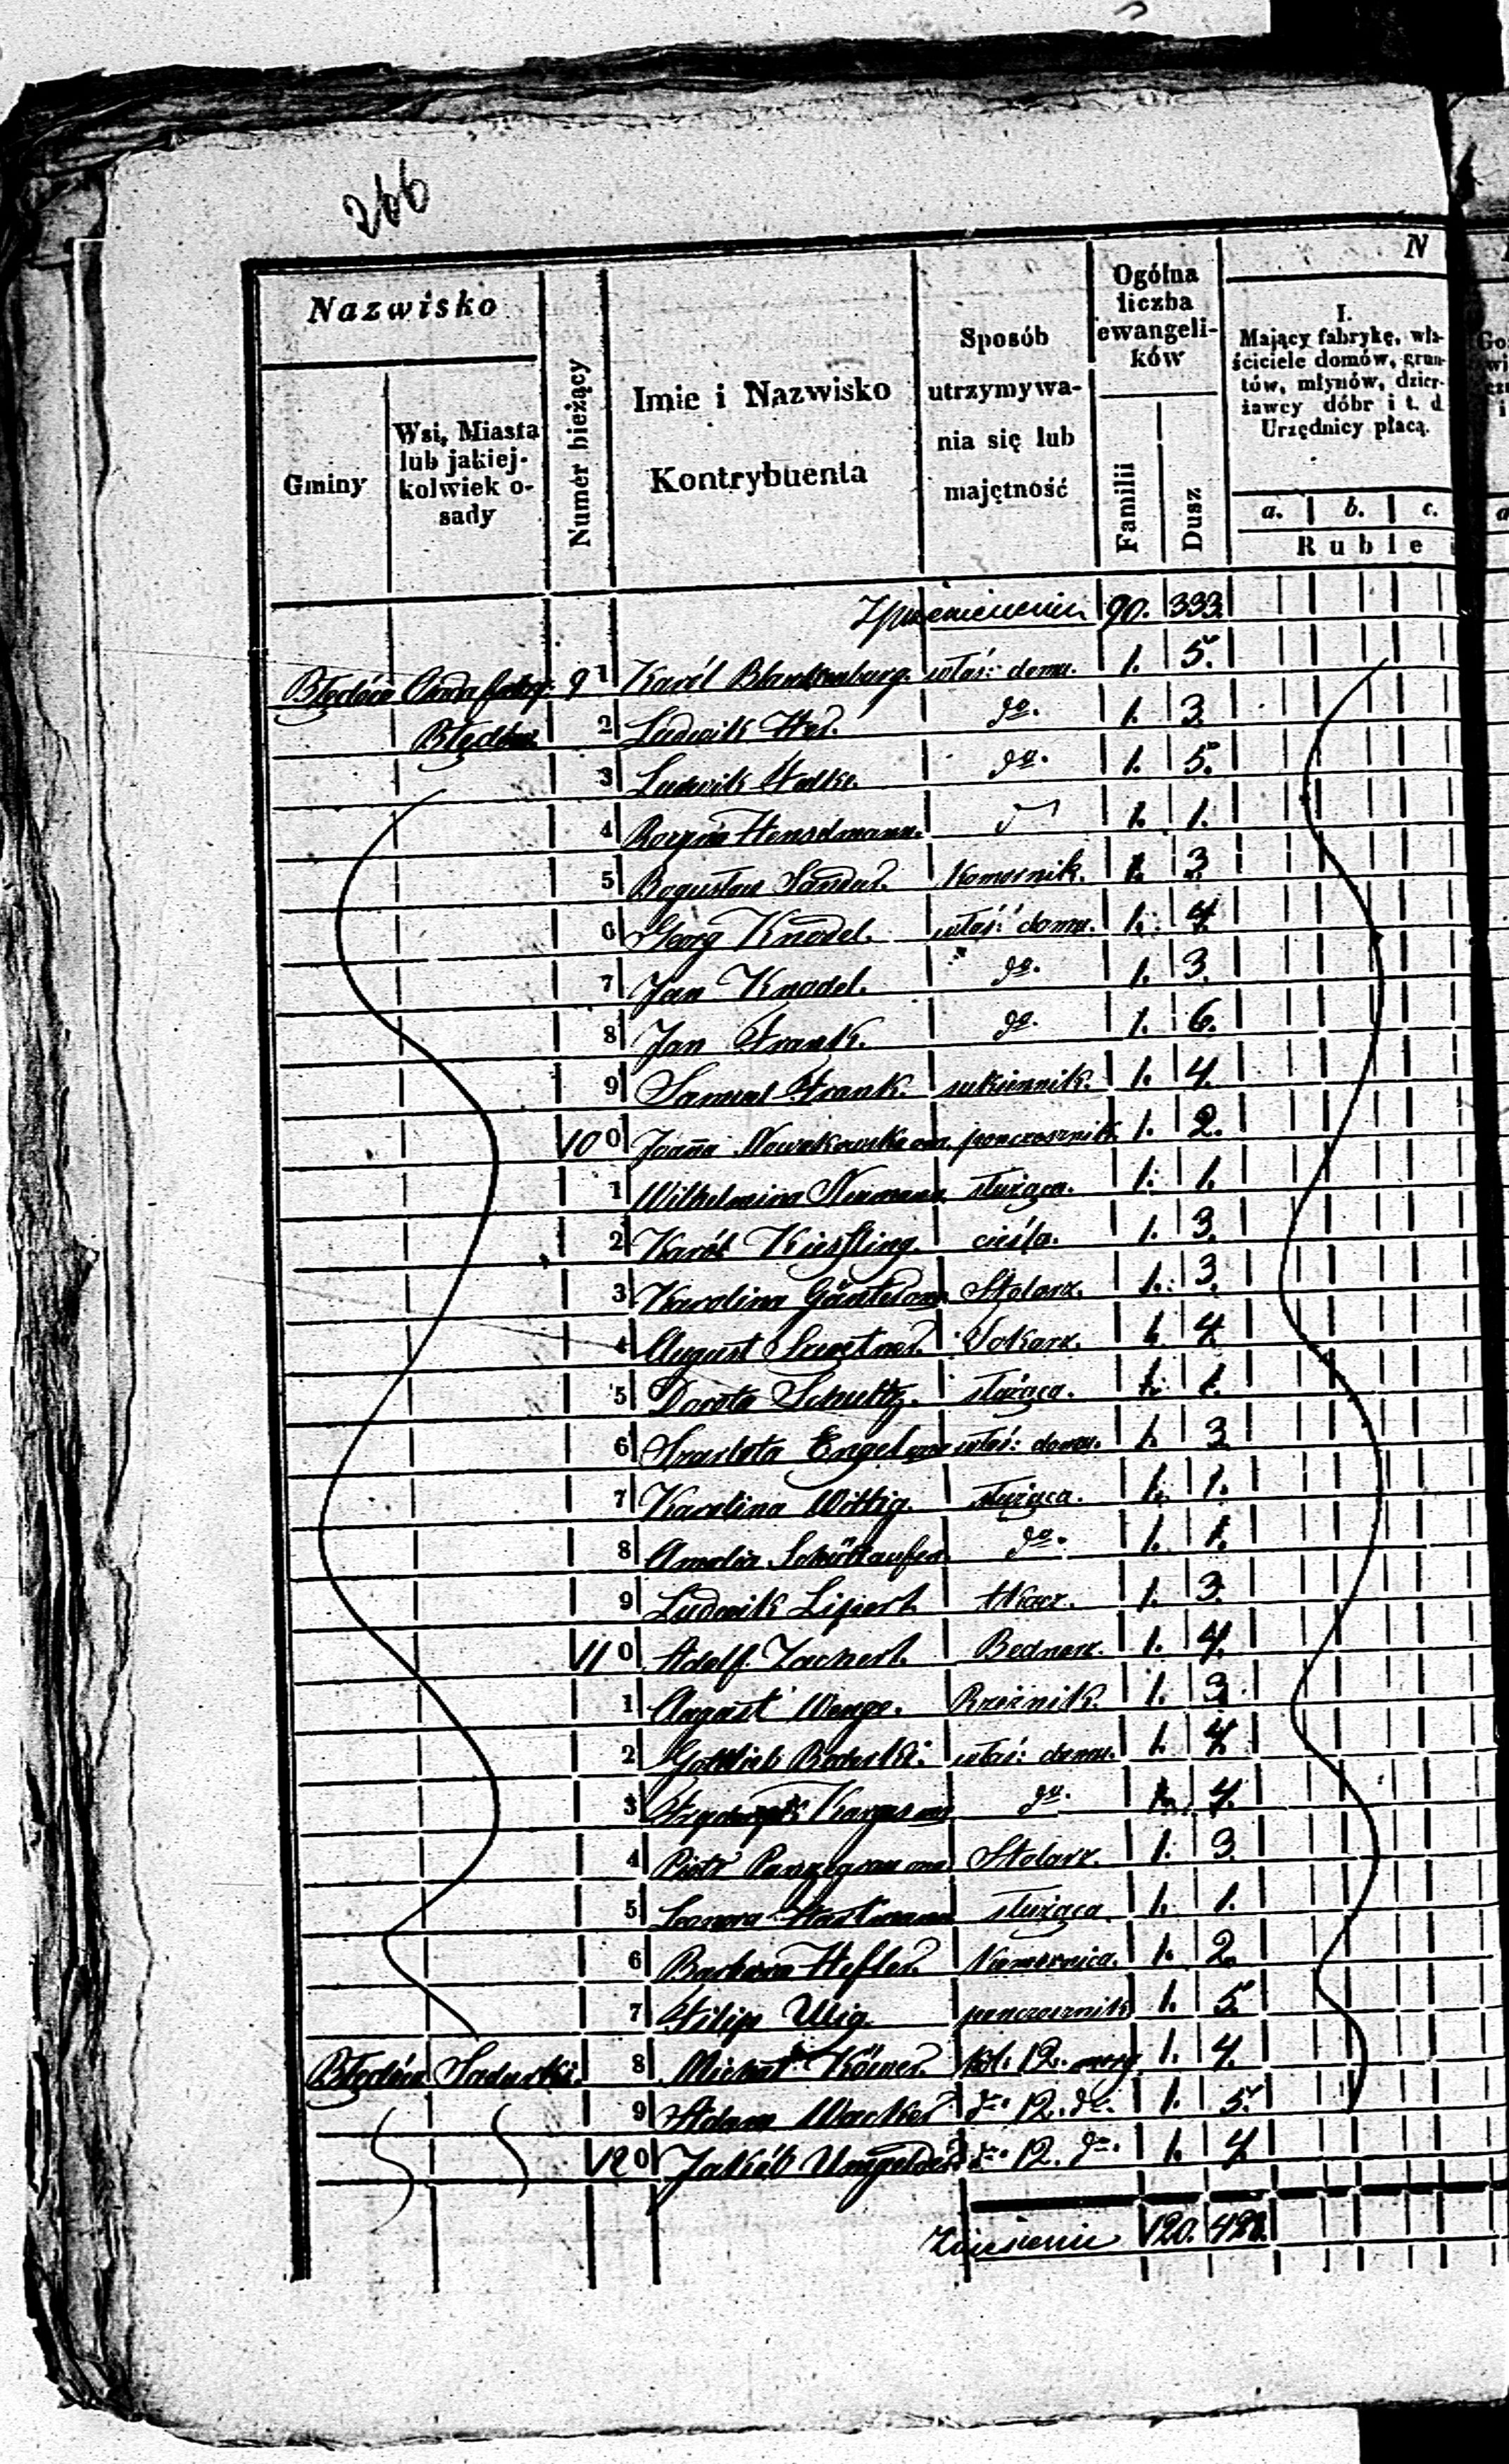 266
Nazwisko
Gminy
Wsi, Miasta lub jakiej-kolwiek o-sady
Numer bieżący
Imie i Nazwisko Kontrybuenta
Sposób utrzymywa-nia się lub majętność
Ogólna liczba ewangeli-ków
Familii
Dusz
N
I.
Mający fabrykę, wła-ściciele domów, grun-tów, młynów, dzier-żawcy dóbr i t. d. Urzędnicy płacą.
a. b. c.
Ruble
Z przeniesienia 90. 333
Błędów Osada fabry: 91 Karól Blankenburg. właś: domu. 1. 5.
Błędów 2 Ludwik do. 1. 3.
3 Ludwik do. 1. 5.
4 1. 1.
5 Bogusław Komornik. 1. 3.
6 Georg Knodel. właś: domu. 1. 4.
7 Jan Knodel. do. 1. 3.
8 Jan Frank. do. 1. 6.
9 Samuel Frank. sukiennik. 1. 4.
100 Joanna Nowakowska pończosznik. 1. 2.
1 Wilhelmina Neumann służąca. 1. 1.
2 Karól Kiessling. cieśla. 1. 3.
3 Karolina Stolarz. 1. 3.
4 August Tokarz. 1. 4.
5 Dorota Schultz. służąca. 1. 1.
6 Szarlota Engel właś: domu. 1. 3.
7 Karolina Wittig. służąca. 1. 1.
8 Amalia do. 1. 1.
9 Ludwik Lipert. tkacz. 1. 3.
110 Adolf Zachert. Bednarz. 1. 4.
1 August Wenge. Rzeźnik. 1. 3.
2 Gottlieb właś: domu. 1. 4.
3 Fryderyk do. 1. 4.
4 Piotr Stolarz. 1. 3.
5 Leonora Hartmann służąca 1. 1.
6 Barbara Hefler. Komornica. 1. 2.
7 Filip Ulig pończosznik 1. 5.
Błędów Sadurki. 8 Michał kol. 12. morg 1. 4.
9 Adam Wacker do. 12. do. 1. 5.
120 Jakób do. 12. do. 1. 4.
Zniesienie 120.